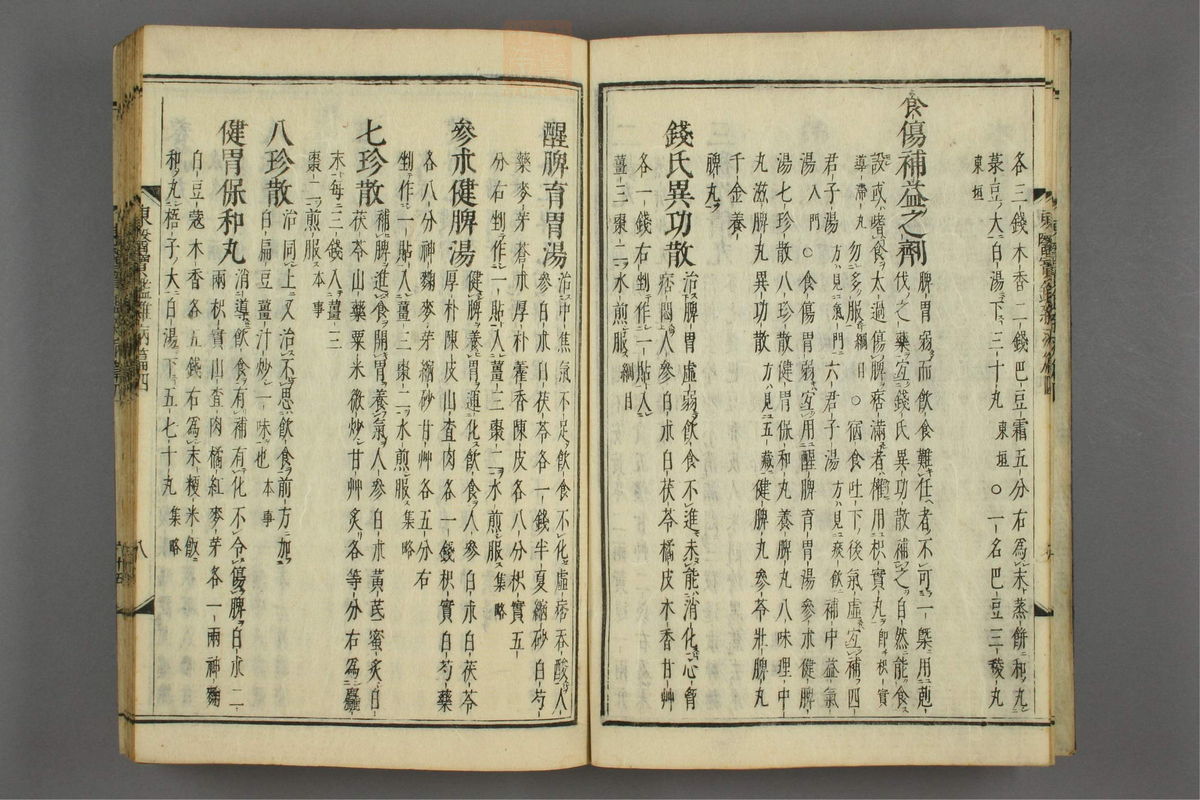 各三錢木香二錢巴豆霜五分右為末蒸餅和丸
菉豆大白湯下三十丸 東垣 ○一名巴豆三稜丸
東垣
食傷補益之劑 脾胃弱而飲食難任者不可一槩用剋
伐之藥宜錢氏異功散補之自然能食
設或嗜食太過傷脾痞滿者權用枳實丸 即枳實
導滯丸 勿多服 綱目 ○宿食吐下後氣虛宜補四
君子湯 方見氣門 六君子湯 方見痰飲 補中益氣
湯 入門 ○食傷胃弱宜用醒脾育胃湯參朮健脾
湯七珍散八珍散健胃保和丸養脾丸八味理中
丸滋脾丸異功散 方見五藏 健脾丸參苓壯脾丸
千金養
脾丸
錢氏異功散 治脾胃虛弱飲食不進未能消化心胷
痞悶人參白朮白茯苓橘皮木香甘艸
各一錢右剉作一貼入
薑三棗二水煎服 綱目
醒脾育胃湯 治中焦氣不足飲食不化虛痞吞酸人
參白朮白茯苓各一錢半夏縮砂白芍
藥麥芽蒼朮厚朴藿香陳皮各八分枳實五
分右剉作一貼入薑三棗二水煎服 集略
參朮健脾湯 健脾養胃運化飲食人參白朮白茯苓
厚朴陳皮山査肉各一錢枳實白芍藥
各八分神麴麥芽縮砂甘艸各五分右
剉作一貼入薑三棗二水煎服 集略
七珍散 補脾進食開胃養氣人參白朮黃芪蜜炙白
茯苓山藥粟米微炒甘艸炙各等分右為麤
末每三錢入薑三
棗二煎服 本事
八珍散 治同上又治不思飲食前方加
白扁豆薑汁炒一味也 本事
健胃保和丸 消導飲食有補有化不令傷脾白朮二
兩枳實山査肉橘紅麥芽各一兩神麴
白豆蔲木香各五錢右為末粳米飯
和丸梧子大白湯下五七十丸 集略